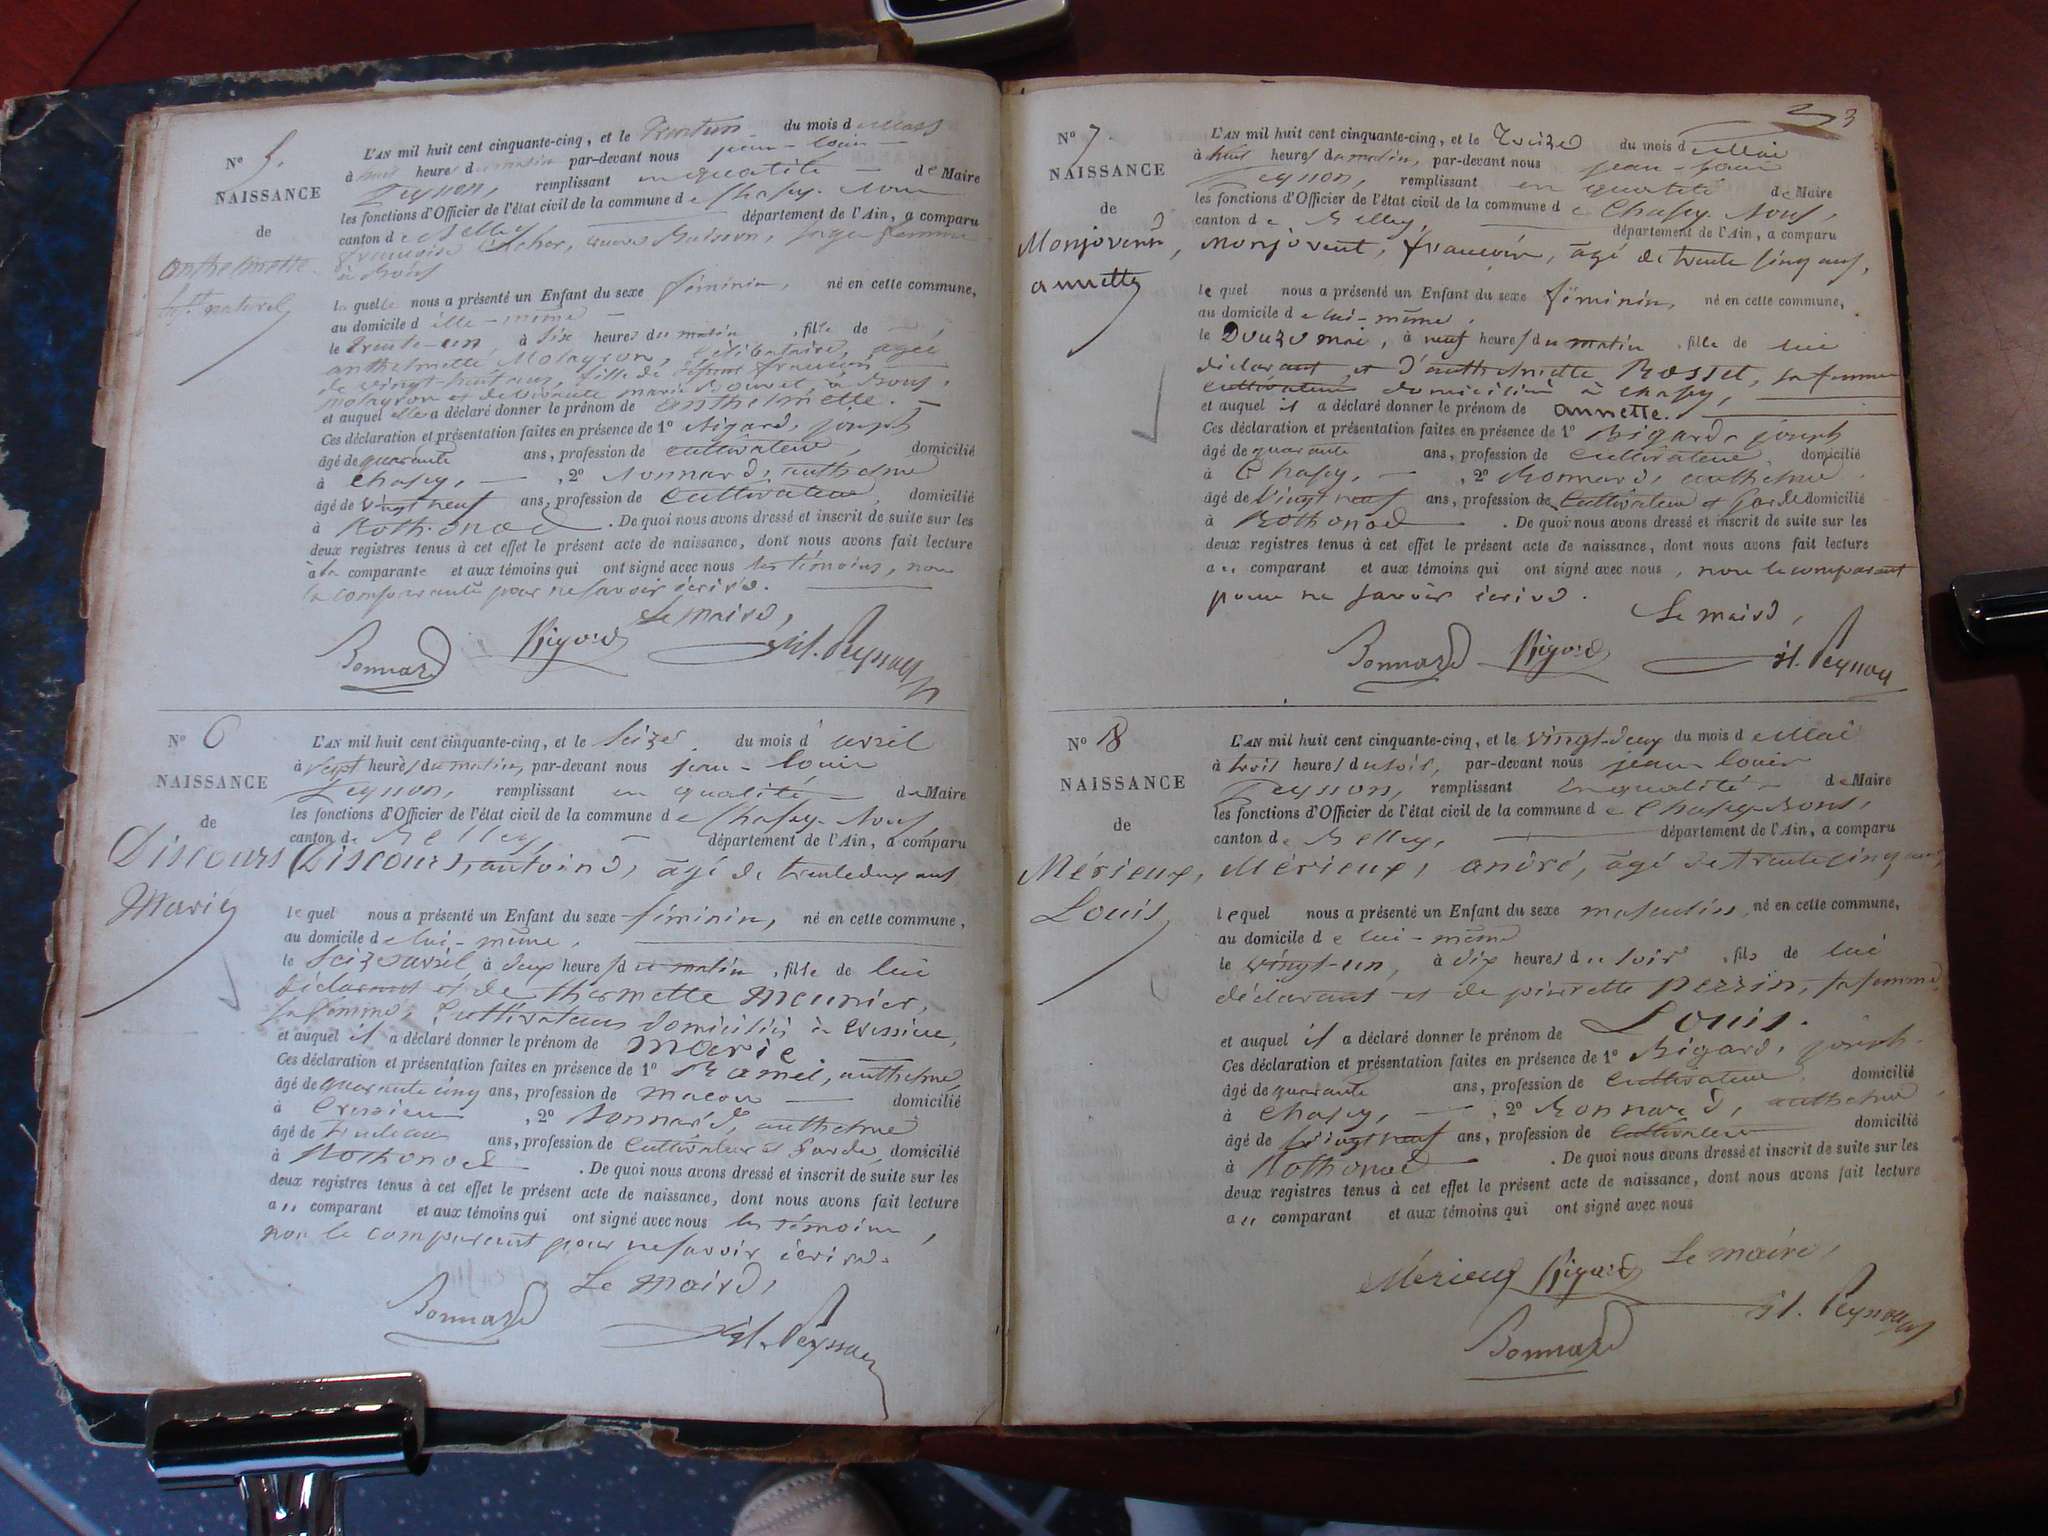 N° 5.
NAISSANCE
de
anthelmette
naturel
L'AN mil huit cent cinquante-cinq, et le du mois d
à heures du matin par-devant nous jean-louis
Peysson, remplissant en qualité de Maire
les fonctions d'Officier de l'état civil de la commune de Chazey-Bons
canton de Belley département de l'Ain, a comparu
françoise veuve Buisson, sage femme
à Bons
la quelle nous a présenté un Enfant du sexe féminin, né en cette commune,
au domicile d elle-même
le trente-un, à six heures du matin, fille de
anthelmette Molayron, célibataire, agée
de vingt-huit ans, fille de françois
molayron et de vivante marie à Bons,
et auquel elle a déclaré donner le prénom de anthelmette.
Ces déclaration et présentation faites en présence de 1° Rigard, joseph
âgé de quarante ans, profession de cultivateur, domicilié
à Chazey, 2° Bonnard, anthelme
âgé de vingt neuf ans, profession de Cultivateur, domicilié
à Rothonod. De quoi nous avons dressé et inscrit de suite sur les
deux registres tenus à cet effet le présent acte de naissance, dont nous avons fait lecture
à la comparante et aux témoins qui ont signé avec nous les témoins, non
la comparante pour ne savoir écrire.
Le maire,
Bonnard Rigard jl. Peysson
N° 6
NAISSANCE
de
Discours
Marie
L'AN mil huit cent cinquante-cinq, et le seize du mois d'avril
à sept heures du matin, par-devant nous jean-louis
Peysson, remplissant en qualité de Maire
les fonctions d'Officier de l'état civil de la commune de Chazey-Bons
canton de Belley, département de l'Ain, a comparu
Discours, antoine, âgé de trente deux ans
le quel nous a présenté un Enfant du sexe féminin, né en cette commune,
au domicile de lui-même,
le seize avril, à deux heures du matin, fille de lui
déclarant et de thermette Meunier,
sa femme, Cultivateurs domiciliés à Cressieu,
et auquel il a déclaré donner le prénom de marie
Ces déclaration et présentation faites en présence de 1° Ramel, anthelme,
âgé de quarante cinq ans, profession de macon domicilié
à Cressieu, 2° Bonnard, anthelme
âgé de ans, profession de Cultivateur et Garde, domicilié
à Rothonod. De quoi nous avons dressé et inscrit de suite sur les
deux registres tenus à cet effet le présent acte de naissance, dont nous avons fait lecture
a u comparant et aux témoins qui ont signé avec nous les témoins,
non le comparant pour ne savoir écrire.
Le Maire,
Bonnard jl. Peysson
3
N° 7.
NAISSANCE
de
Monjovent,
annette
L'AN mil huit cent cinquante-cinq, et le treize du mois de Mai
à huit heures du matin, par-devant nous jean-louis
Peysson, remplissant en qualité de Maire
les fonctions d'Officier de l'état civil de la commune de Chazey-Bons,
canton de Belley, département de l'Ain, a comparu
Monjovent, françois, âgé de trente cinq ans,
le quel nous a présenté un Enfant du sexe féminin, né en cette commune,
au domicile de lui-même,
le Douze mai, à neuf heures du matin, fille de lui
déclarant et d'anthelmette Rosset, sa femme
cultivateurs domiciliés à Chazey,
et auquel il a déclaré donner le prénom de annette.
Ces déclaration et présentation faites en présence de 1° Rigard, joseph
âgé de quarante ans, profession de Cultivateur, domicilié
à Chazey, 2° Bonnard, anthelme
âgé de vingt neuf ans, profession de Cultivateur et Garde domicilié
à Rothonod. De quoi nous avons dressé et inscrit de suite sur les
deux registres tenus à cet effet le présent acte de naissance, dont nous avons fait lecture
a u comparant et aux témoins qui ont signé avec nous, non le comparant
pour ne savoir écrire.
Le maire,
Bonnard Rigard jl. Peysson
N° 8
NAISSANCE
de
Mérieux,
Louis
L'AN mil huit cent cinquante-cinq, et le vingt-deux du mois de Mai
à trois heures du soir, par-devant nous jean louis
Peysson, remplissant en qualité de Maire
les fonctions d'Officier de l'état civil de la commune de Chazey-Bons,
canton de Belley, département de l'Ain, a comparu
Mérieux, andré, âgé de trente cinq ans,
lequel nous a présenté un Enfant du sexe masculin, né en cette commune,
au domicile de lui-même
le vingt-un, à dix heures du soir, fils de lui
déclarant et de pierrette perrin, sa femme
et auquel il a déclaré donner le prénom de Louis.
Ces déclaration et présentation faites en présence de 1° Rigard, joseph
âgé de quarante ans, profession de Cultivateur, domicilié
à Chazey, 2° Bonnard, anthelme,
âgé de vingt neuf ans, profession de Cultivateur domicilié
à Rothonod. De quoi nous avons dressé et inscrit de suite sur les
deux registres tenus à cet effet le présent acte de naissance, dont nous avons fait lecture
a u comparant et aux témoins qui ont signé avec nous
Le maire,
Mérieux Rigard
jl. Peysson
Bonnard